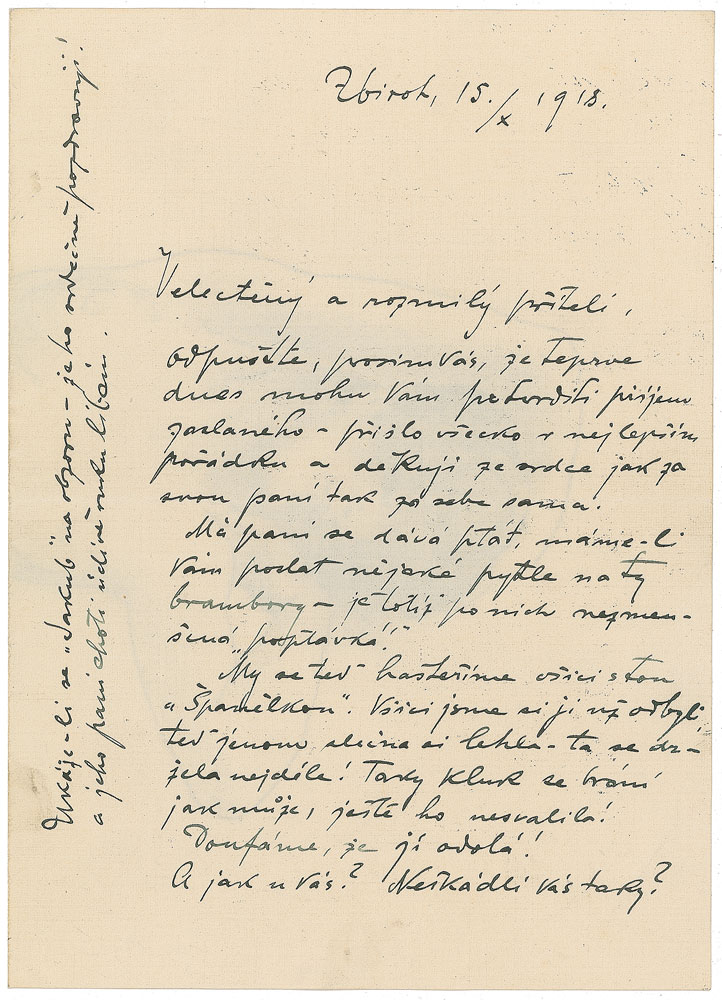 Zbiroh, 15./X 1918.
Velectěný a rozmilý příteli,
odpusťte, prosím Vás, že teprve
dnes mohu Vám potvrditi příjem
zaslaného - přišlo všecko v nejlepším
pořádku a děkuji ze srdce jak za
svou paní tak za sebe sama.
Má paní se dává ptát, máme-li
Vám poslat nějaké pytle na ty
brambory - je totiž po nich nezmen-
šená "poptávka!"
My se teď hašteříme všici s tou
"Španělkou". Všici jsme si ji už odbyli,
teď jenom slečna si lehla - ta se dr-
žela nejdéle! Taky kluk se brání
jak může, ještě ho nesvalila!
Doufáme, že jí odolá!
A jak u Vás? Neškádlí Vás taky?
Ukáže-li se "Jakub" na obzoru - je ho srdečně pozdravuji!
a jeho paní choti uctivě ruku líbám.